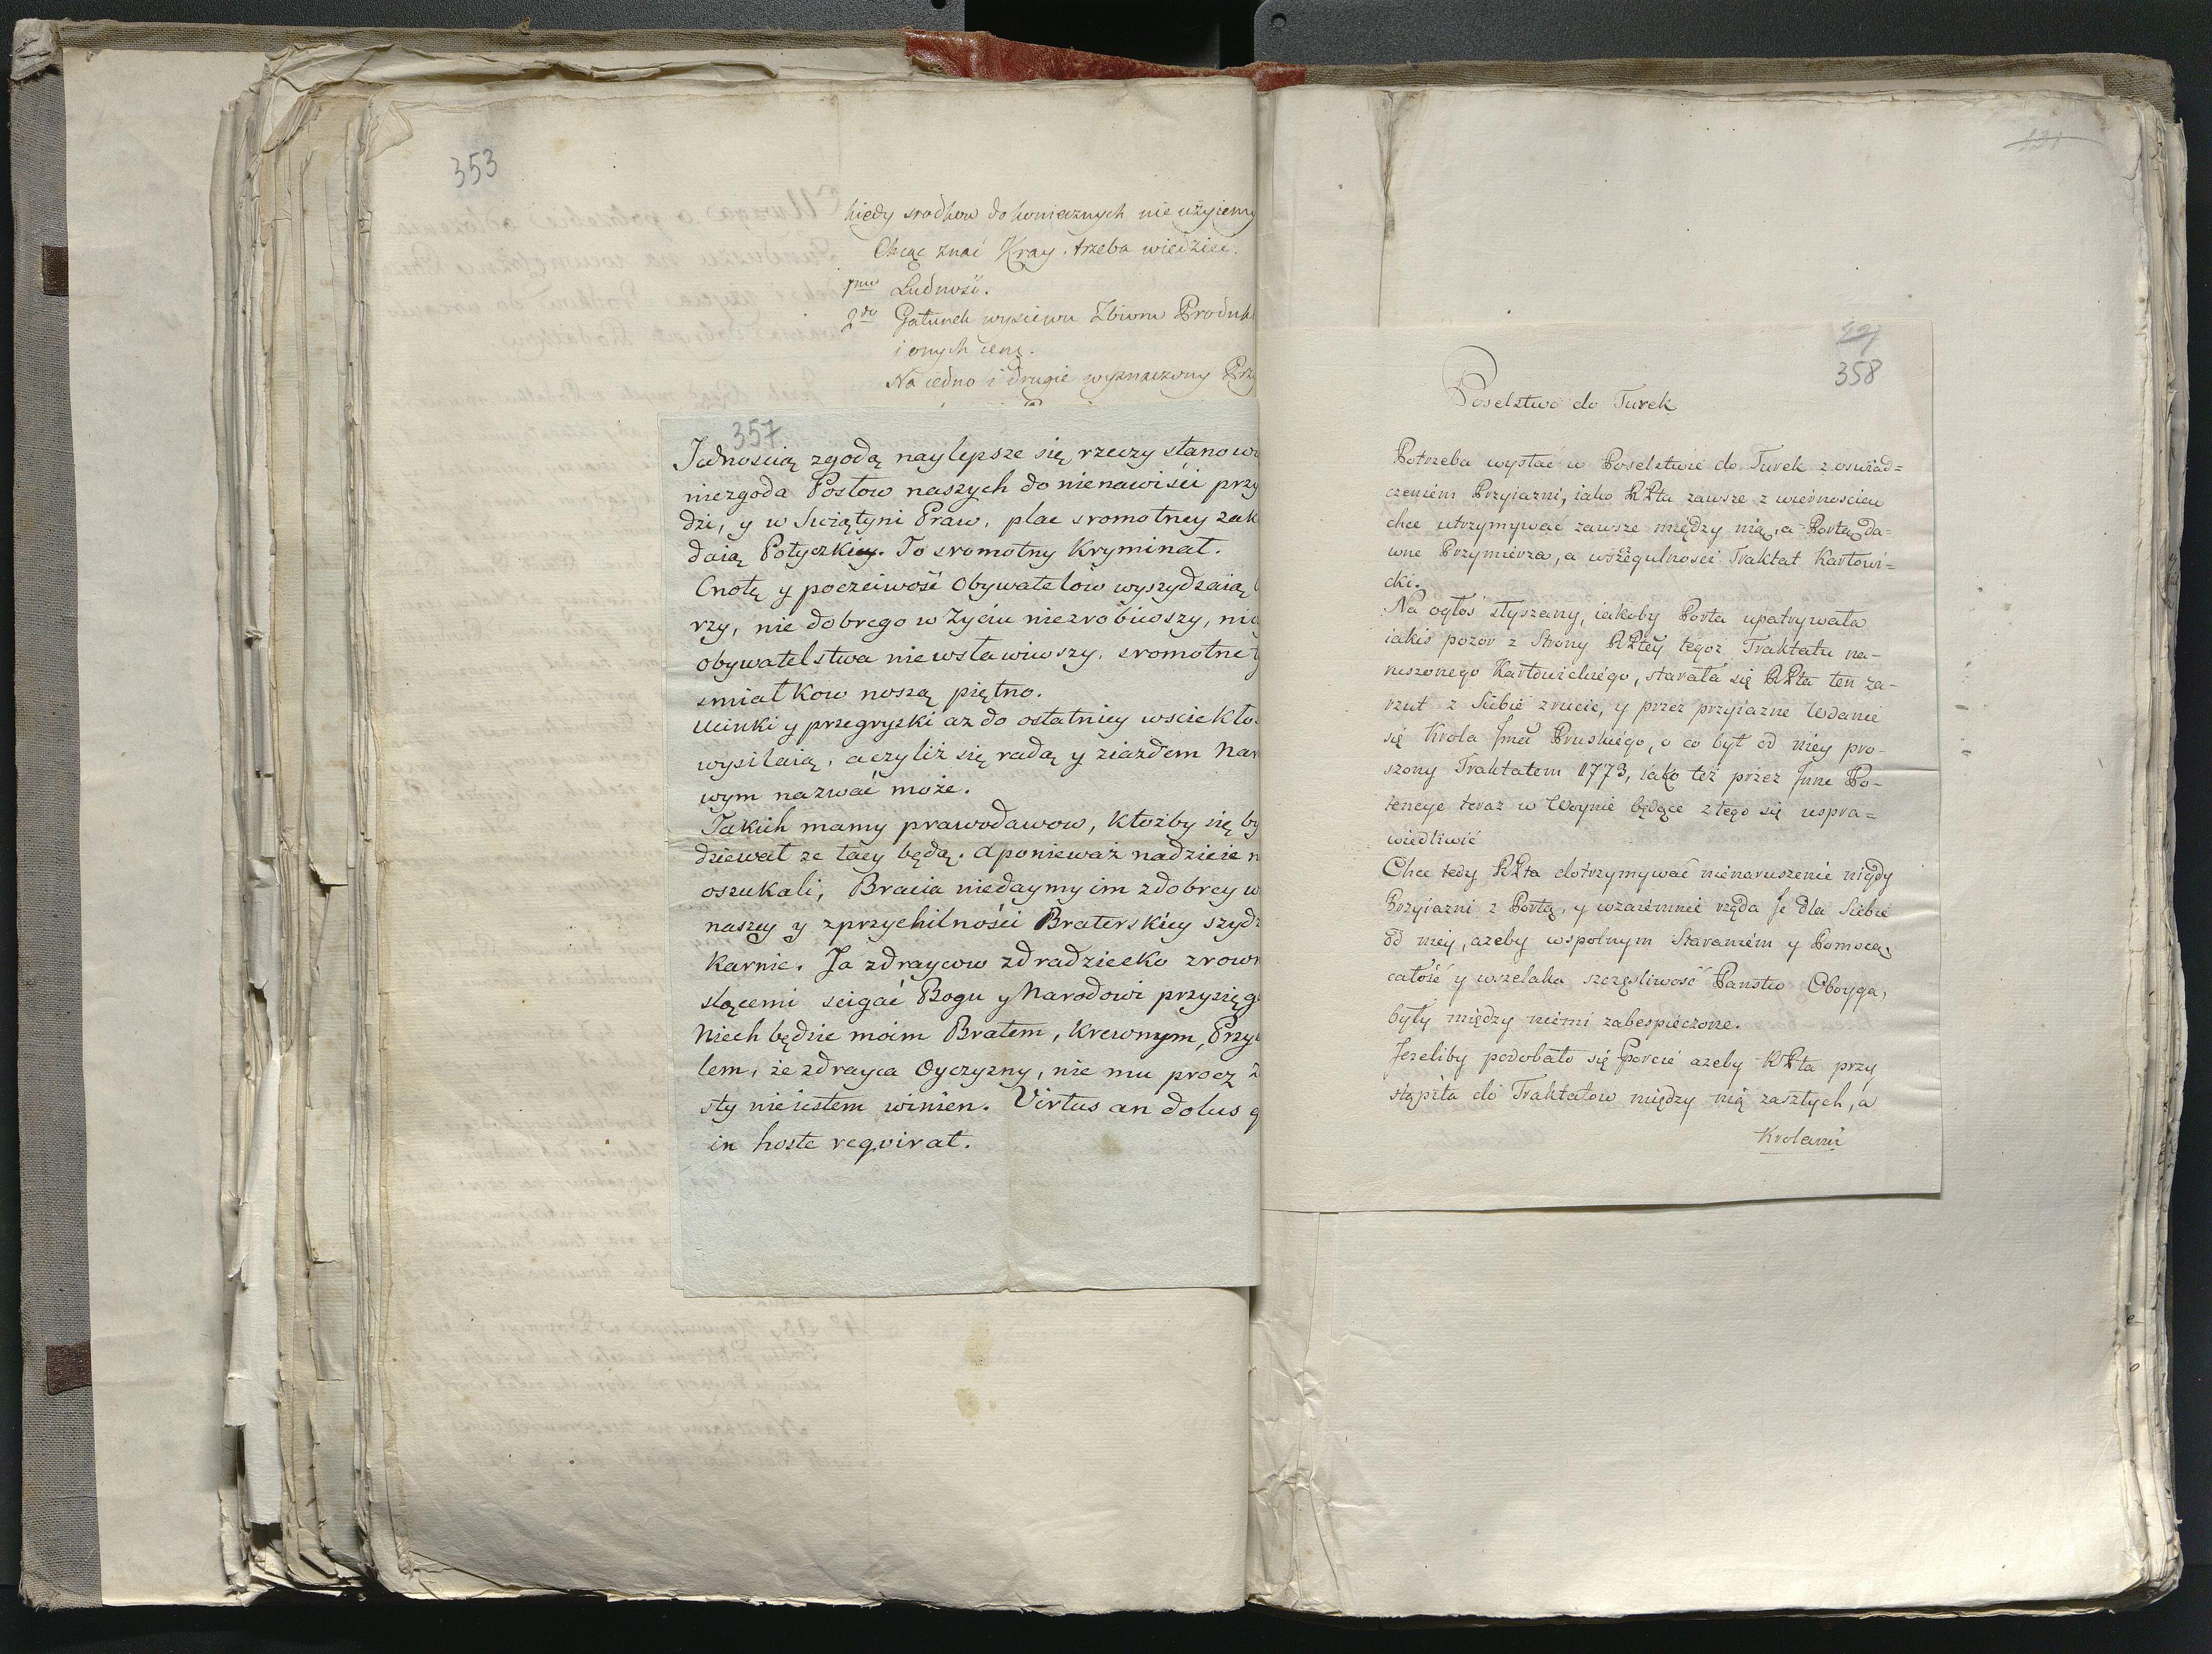 353
kiedy srodkow do koniecznych nie użyiemy
Chcąc znać Kray, trzeba wiedzieć.
1mo Ludność.
2do Gatunek wysiewu Zbioru Produk
i onych cenę.
Na iedno i drugie wyznaczony Prz
357
Jednoscią zgodą naylepsze się rzeczy stanow
niezgoda Posłow naszych do nienawiści przy
dzi, y w Swiątyni Praw, plac sromotney zak
daią Potyczki. To sromotny Kryminał.
Cnotę y poczciwość Obywatelow wyszydzaią
rzy, nic dobrego w Życiu niezrobiwszy, ni
obywatelstwa niewsławiwszy, sromotne
smiałkow noszą piętno.
Ucinki y przegryzki az do ostatniey wsciekło
wysilaią, aczyliż się radą y ziazdem Nar
wym nazwać może.
Takich mamy prawodawow, ktożby się by
dziewał ze tacy będą. aponieważ nadzieie n
oszukali, Bracia niedaymy im zdobrey w
naszey y zprzychilności Braterskiey szydz
karnie. Ja zdraycow zdradziecko zrown
stącemi scigać Bogu y Narodowi przysięg
Niech będzie moim Bratem, krewnym, Przy
lem, że zdrayca Oyczyzny, nic mu procz z
sty nieiestem winien. Virtus an dolus q
in hoste requirat.
358
Poselztwo do Turek
Potrzeba wysłać w Poselztwie do Turek z oswiad=
czeniem Przyiazni, iako RPta zawsze z wiernosciu
chce utrzymywać zawsze między nią, a Portą da=
wne Przymierza, a wszczegulności Traktat Karłowi=
cki.
Na ogłos słyszany, iakoby Porta upatrywała
iakiś pozor z Strony RPtey tegoz Traktatu na=
ruszonego Karłowickiego, starała się RPta ten za=
rzut z Siebie zrucić, y przez przyiazne Wdanie
się Krola Jmci Pruskiego, o co był od niey pro=
szony Traktatem 1773, iako też przez Jnne Po=
tencye teraz w Woynie będące z tego się uspra=
wiedliwić
Chce tedy RPta dotrzymywać nienaruszenie nigdy
Przyiazni z Portą, y wzaiemnie rząda Je dla Siebie
od niey, azeby wspolnym Staraniem y Pomocą,
całość y wszelaka szczęsliwość Panstw Oboyga,
były między niemi zabespieczone.
Jezeliby podobało się Porcie azeby RPta przy
stąpiła do Traktatow między nią zaszłych, a
Krolami